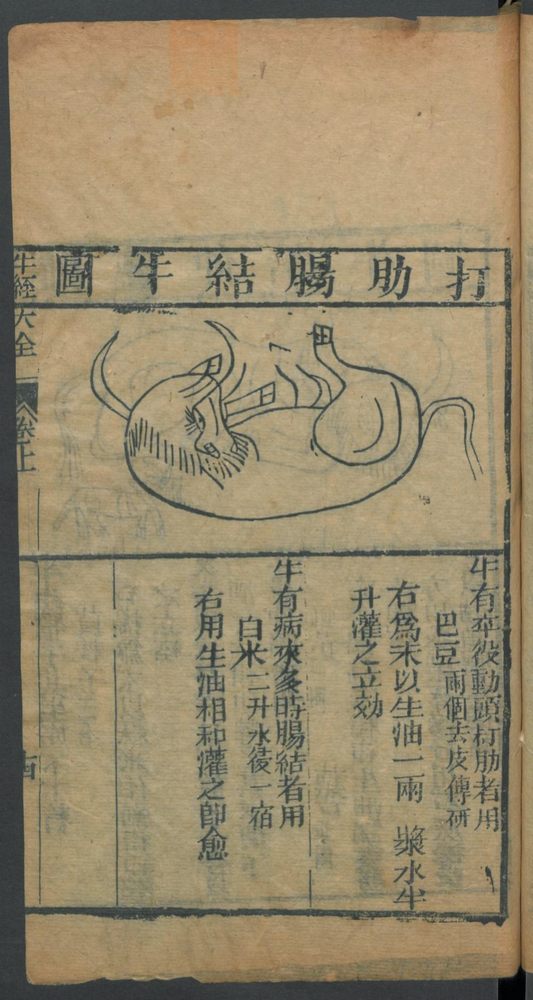 打肋腸結牛圖
牛有卒役動頭打肋者用
巴豆兩個去皮傳研
右為末以生油一兩 漿水半
升灌之立効
牛有病來多時腸結者用
白米二升水後一宿
右用生油相和灌之卽愈
牛經大全 卷上